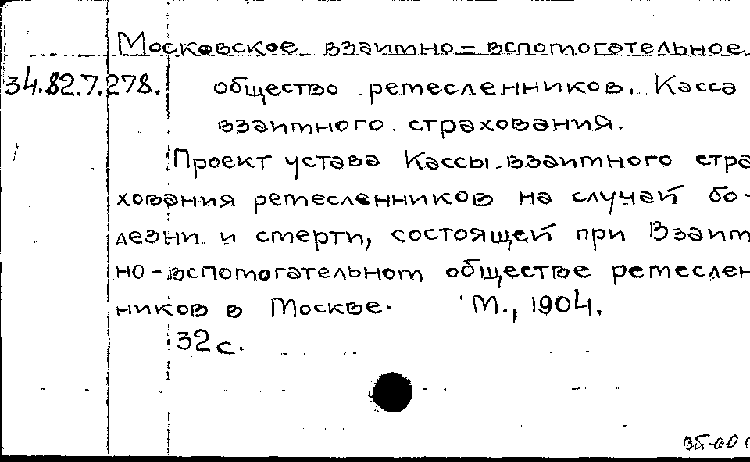 Московское взаимно-вспомогательное
34.82.7.278. общество ремесленников. Касса
взаимного страхования.
Проект устава Кассы взаимного стра
хования ремесленников на случай бо-
лезни и смерти, состоящей при Взаим
но-вспомогательном обществе ремеслен
ников в Москве. М., 1904.
32 с.